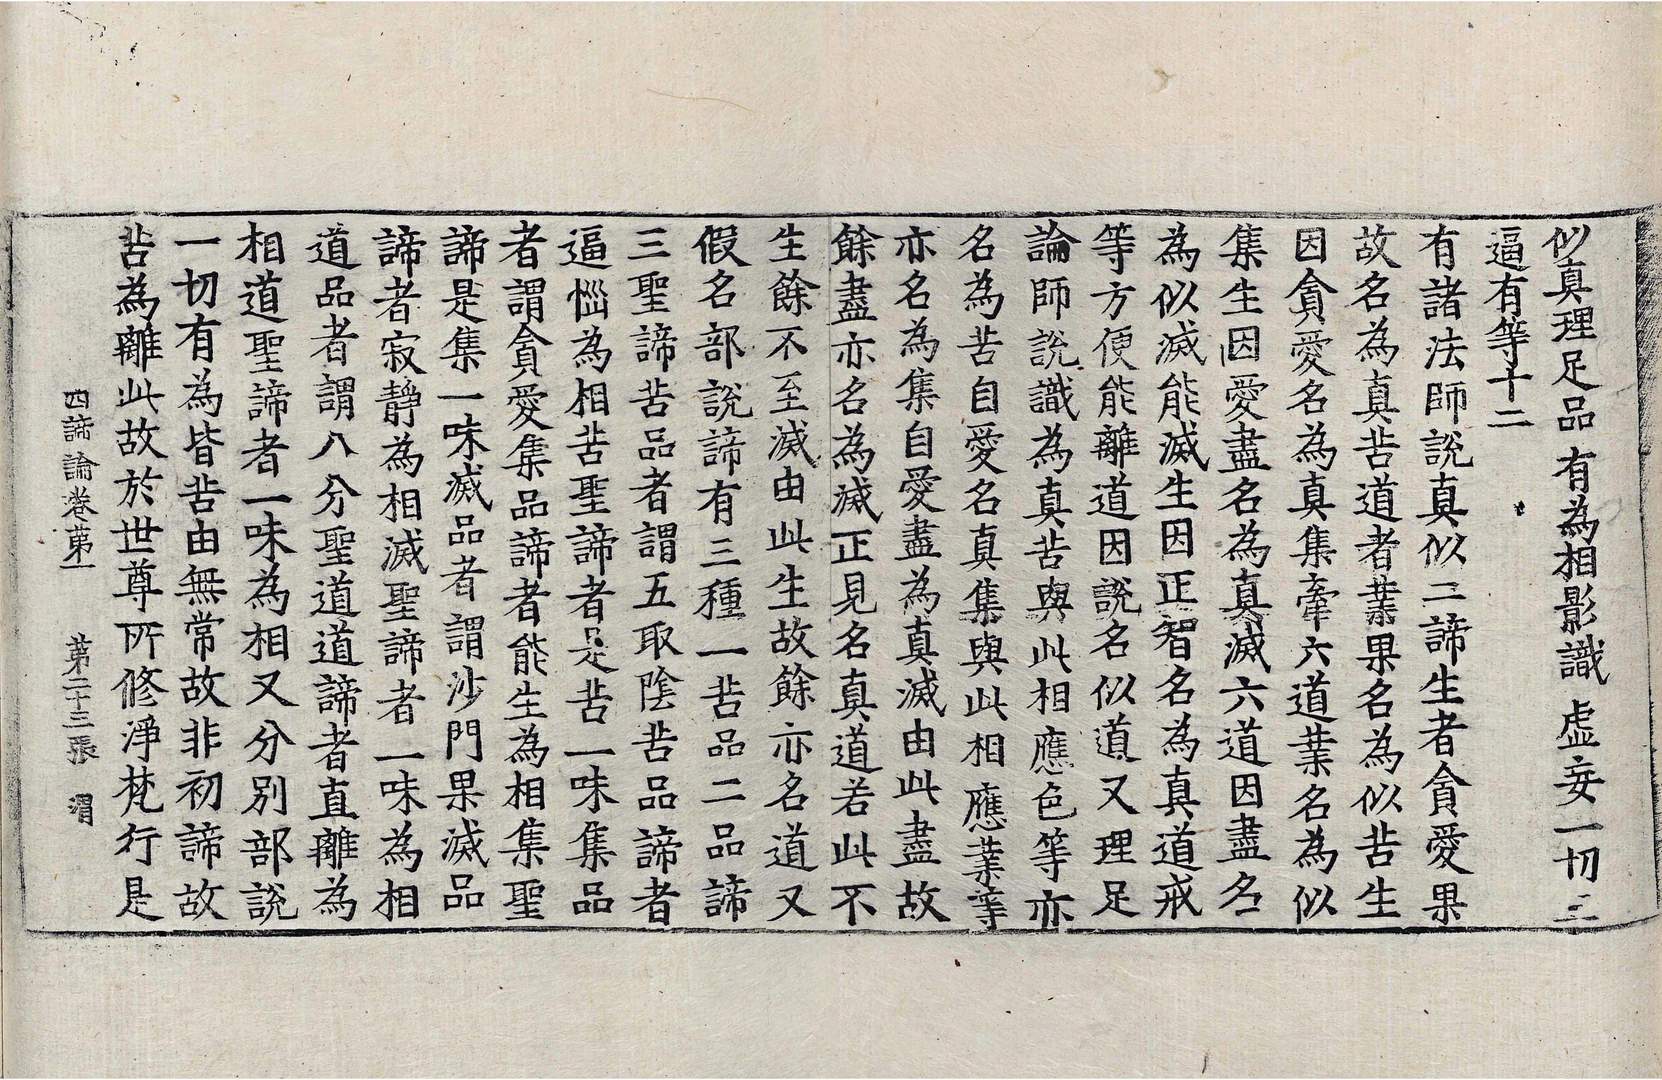 似真理足品 有為相影識 虛妄一切三
逼有等十二
有諸法師說真似二諦生者貪愛果
故名為真苦道者業果名為似苦生
因貪愛名為真集牽六道業名為似
集生因愛盡名為真滅六道因盡名
為似滅能滅生因正智名為真道戒
等方便能離道因說名似道又理足
論師說識為真苦與此相應色等亦
名為苦自愛名真集與此相應業等
亦名為集自愛盡為真滅由此盡故
餘盡亦名為滅正見名真道若此不
生餘不至滅由此生故餘亦名道又
假名部說諦有三種一苦品二品諦
三聖諦苦品者謂五取陰苦品諦者
逼惱為相苦聖諦者是苦一味集品
者謂貪愛集品諦者能生為相集聖
諦是集一味滅品者謂沙門果滅品
諦者寂靜為相滅聖諦者一味為相
道品者謂八分聖道道諦者直離為
相道聖諦者一味為相又分別部說
一切有為皆苦由無常故非初諦故
苦為離此故於世尊所修淨梵行是
四諦論卷第一 第二十三張 渭